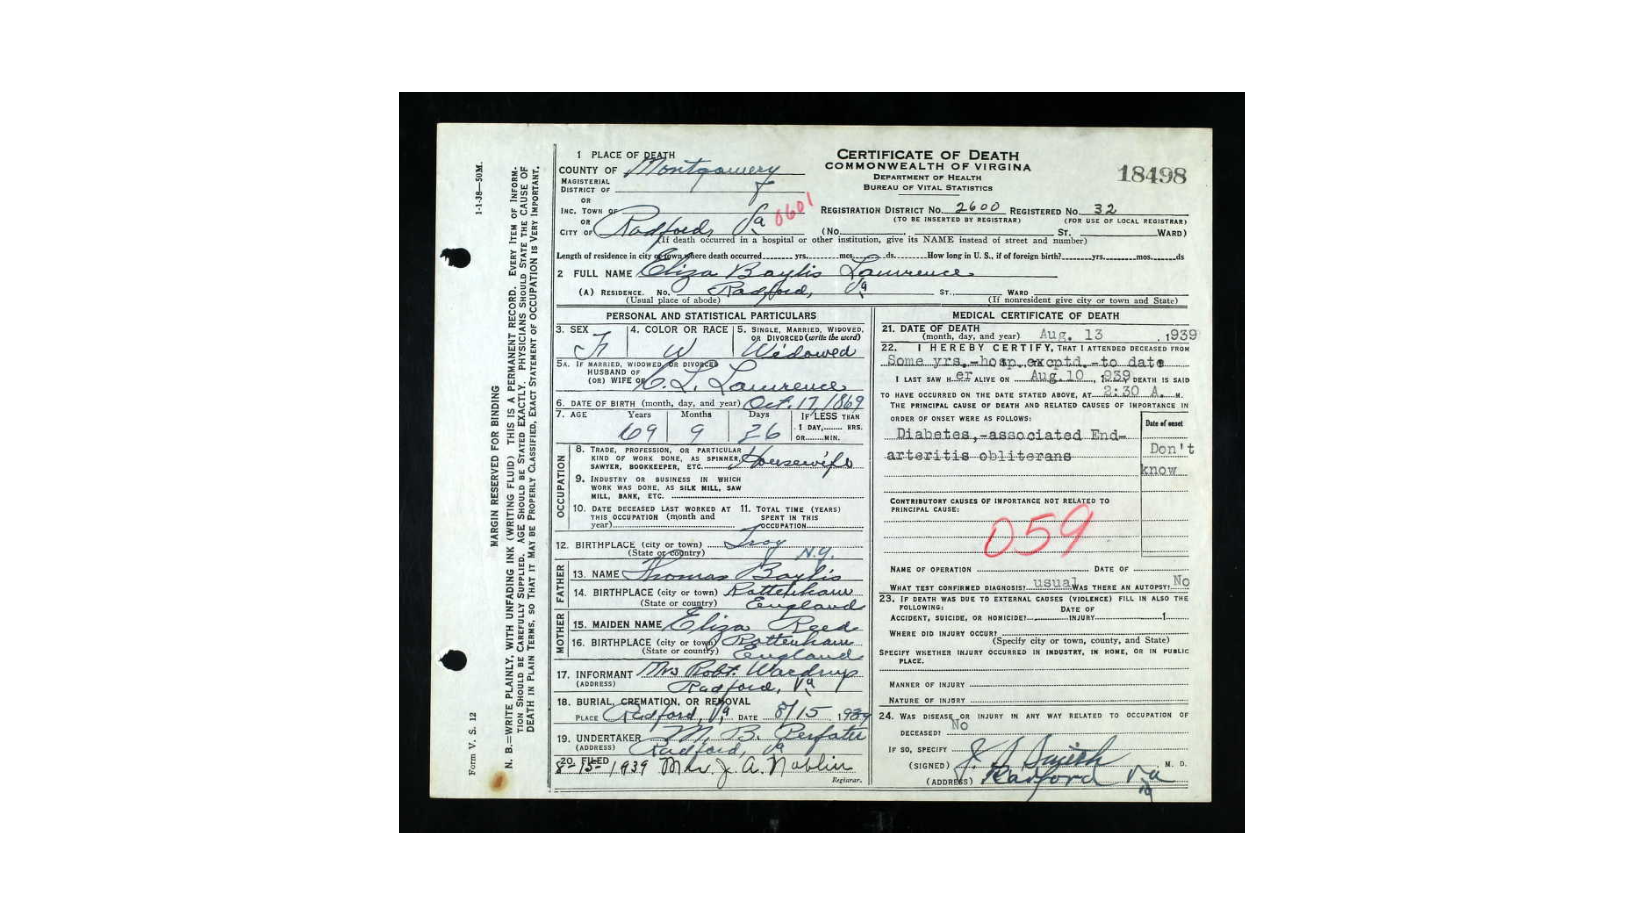 1 PLACE OF DEATH
COUNTY OF Montgomery
MAGISTERIAL DISTRICT OF
OR
INC. TOWN OF
OR
CITY OF Radford, Va 0601
CERTIFICATE OF DEATH
COMMONWEALTH OF VIRGINIA
DEPARTMENT OF HEALTH
BUREAU OF VITAL STATISTICS
18498
REGISTRATION DISTRICT NO. 2600 REGISTERED NO. 32
(TO BE INSERTED BY REGISTRAR) (FOR USE OF LOCAL REGISTRAR)
(No. ST. WARD)
(If death occurred in a hospital or other institution, give its NAME instead of street and number)
Length of residence in city or town where death occurred yrs. mos. ds. How long in U. S., if of foreign birth? yrs. mos. ds
2 FULL NAME Eliza Baylis Lawrence
(A) RESIDENCE. NO. Radford, Va ST., WARD
(Usual place of abode) (If nonresident give city or town and State)
PERSONAL AND STATISTICAL PARTICULARS
3. SEX F
4. COLOR OR RACE W
5. SINGLE, MARRIED, WIDOWED, OR DIVORCED (write the word) Widowed
5A. IF MARRIED, WIDOWED OR DIVORCED
HUSBAND OF
(OR) WIFE OF C. L. Lawrence
6. DATE OF BIRTH (month, day, and year) Oct. 17, 1869
7. AGE Years Months Days IF LESS THAN
69 9 26 1 DAY, HRS.
OR MIN.
OCCUPATION
8. TRADE, PROFESSION, OR PARTICULAR
KIND OF WORK DONE, AS SPINNER,
SAWYER, BOOKKEEPER, ETC. Housewife
9. INDUSTRY OR BUSINESS IN WHICH
WORK WAS DONE, AS SILK MILL, SAW
MILL, BANK, ETC.
10. DATE DECEASED LAST WORKED AT
THIS OCCUPATION (month and
year)
11. TOTAL TIME (YEARS)
SPENT IN THIS
OCCUPATION
12. BIRTHPLACE (city or town) Troy
(State or country) N.Y.
FATHER
13. NAME Thomas Baylis
14. BIRTHPLACE (city or town)
(State or country) England
MOTHER
15. MAIDEN NAME Eliza Reed
16. BIRTHPLACE (city or town)
(State or country) England
17. INFORMANT Mrs Robt. Wardrup
(ADDRESS) Radford, Va
18. BURIAL, CREMATION, OR REMOVAL
PLACE Radford, Va DATE 8/15, 1939
19. UNDERTAKER M. B. Perfater
(ADDRESS) Radford, Va
20. FILED
8-15-1939 Mrs. J. A. Noblin
Registrar.
MEDICAL CERTIFICATE OF DEATH
21. DATE OF DEATH
(month, day, and year) Aug. 13 , 1939
22. I HEREBY CERTIFY, THAT I ATTENDED DECEASED FROM
Some yrs.-hosp.excptd.-to date
I LAST SAW H er ALIVE ON Aug.10 1939 DEATH IS SAID
TO HAVE OCCURRED ON THE DATE STATED ABOVE, AT 2:30 A. M.
THE PRINCIPAL CAUSE OF DEATH AND RELATED CAUSES OF IMPORTANCE IN
ORDER OF ONSET WERE AS FOLLOWS:
Date of onset
Diabetes,-associated End-
arteritis obliterans
Don't
know
CONTRIBUTORY CAUSES OF IMPORTANCE NOT RELATED TO
PRINCIPAL CAUSE:
059
NAME OF OPERATION DATE OF
WHAT TEST CONFIRMED DIAGNOSIS? usual WAS THERE AN AUTOPSY? No
23. IF DEATH WAS DUE TO EXTERNAL CAUSES (VIOLENCE) FILL IN ALSO THE
FOLLOWING: DATE OF
ACCIDENT, SUICIDE, OR HOMICIDE? INJURY 1
WHERE DID INJURY OCCUR?
(Specify city or town, county, and State)
SPECIFY WHETHER INJURY OCCURRED IN INDUSTRY, IN HOME, OR IN PUBLIC
PLACE.
MANNER OF INJURY
NATURE OF INJURY
24. WAS DISEASE OR INJURY IN ANY WAY RELATED TO OCCUPATION OF
DECEASED? No
IF SO, SPECIFY
(SIGNED) Smith M. D.
(ADDRESS) Radford Va
MARGIN RESERVED FOR BINDING
N. B.—WRITE PLAINLY, WITH UNFADING INK (WRITING FLUID) THIS IS A PERMANENT RECORD. EVERY ITEM OF INFORM-
TION SHOULD BE CAREFULLY SUPPLIED. AGE SHOULD BE STATED EXACTLY. PHYSICIANS SHOULD STATE THE CAUSE OF
DEATH IN PLAIN TERMS, SO THAT IT MAY BE PROPERLY CLASSIFIED. EXACT STATEMENT OF OCCUPATION IS VERY IMPORTANT.
Form V. S. 12
1-1-38—50M.